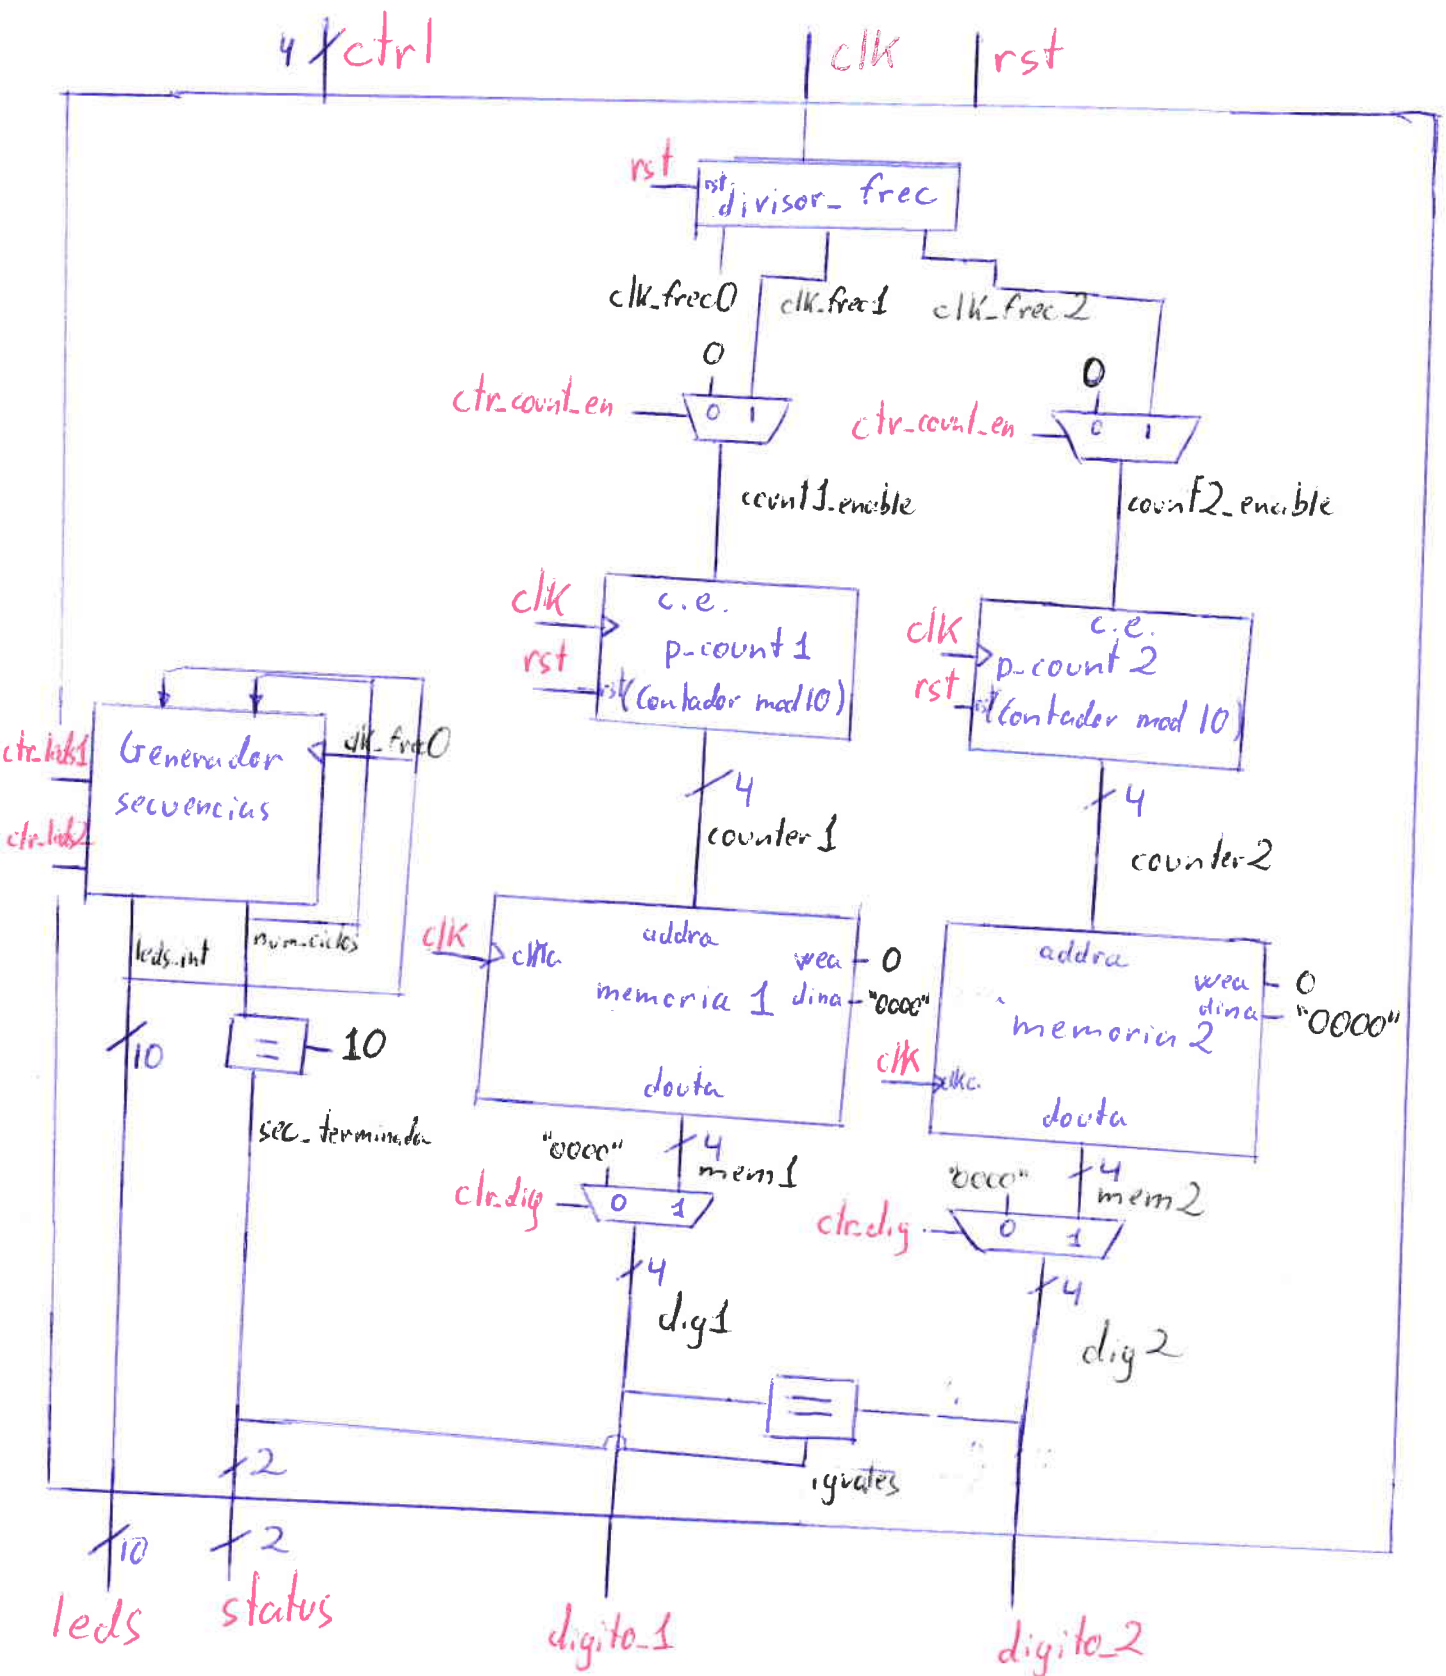 4 ctrl clk rst
rst
rst
divisor_frec
clk_frec0 clk_frec1 clk_frec2
0 0
ctr_count_en 0 1
ctr_count_en 0 1
count1_enable count2_enable
clk c.e.
p_count 1
rst rst (contador mod 10)
clk c.e.
p_count 2
rst rst (contador mod 10)
4 4
counter1 counter2
ctr_leds1 Generador clk_frec0
secuencias
ctr_leds2
leds_int num_ciclos
10 = 10
sec_terminada
clk clka addra
wea 0
memoria 1 dina "0000"
douta
addra
wea 0
dina "0000"
memoria 2
clk clka
douta
"0000" 4
mem1
ctr_dig 0 1
"0000" 4
mem2
ctr_dig 0 1
4 4
dig1 dig2
=
2 iguales
10 2
leds status digito_1 digito_2